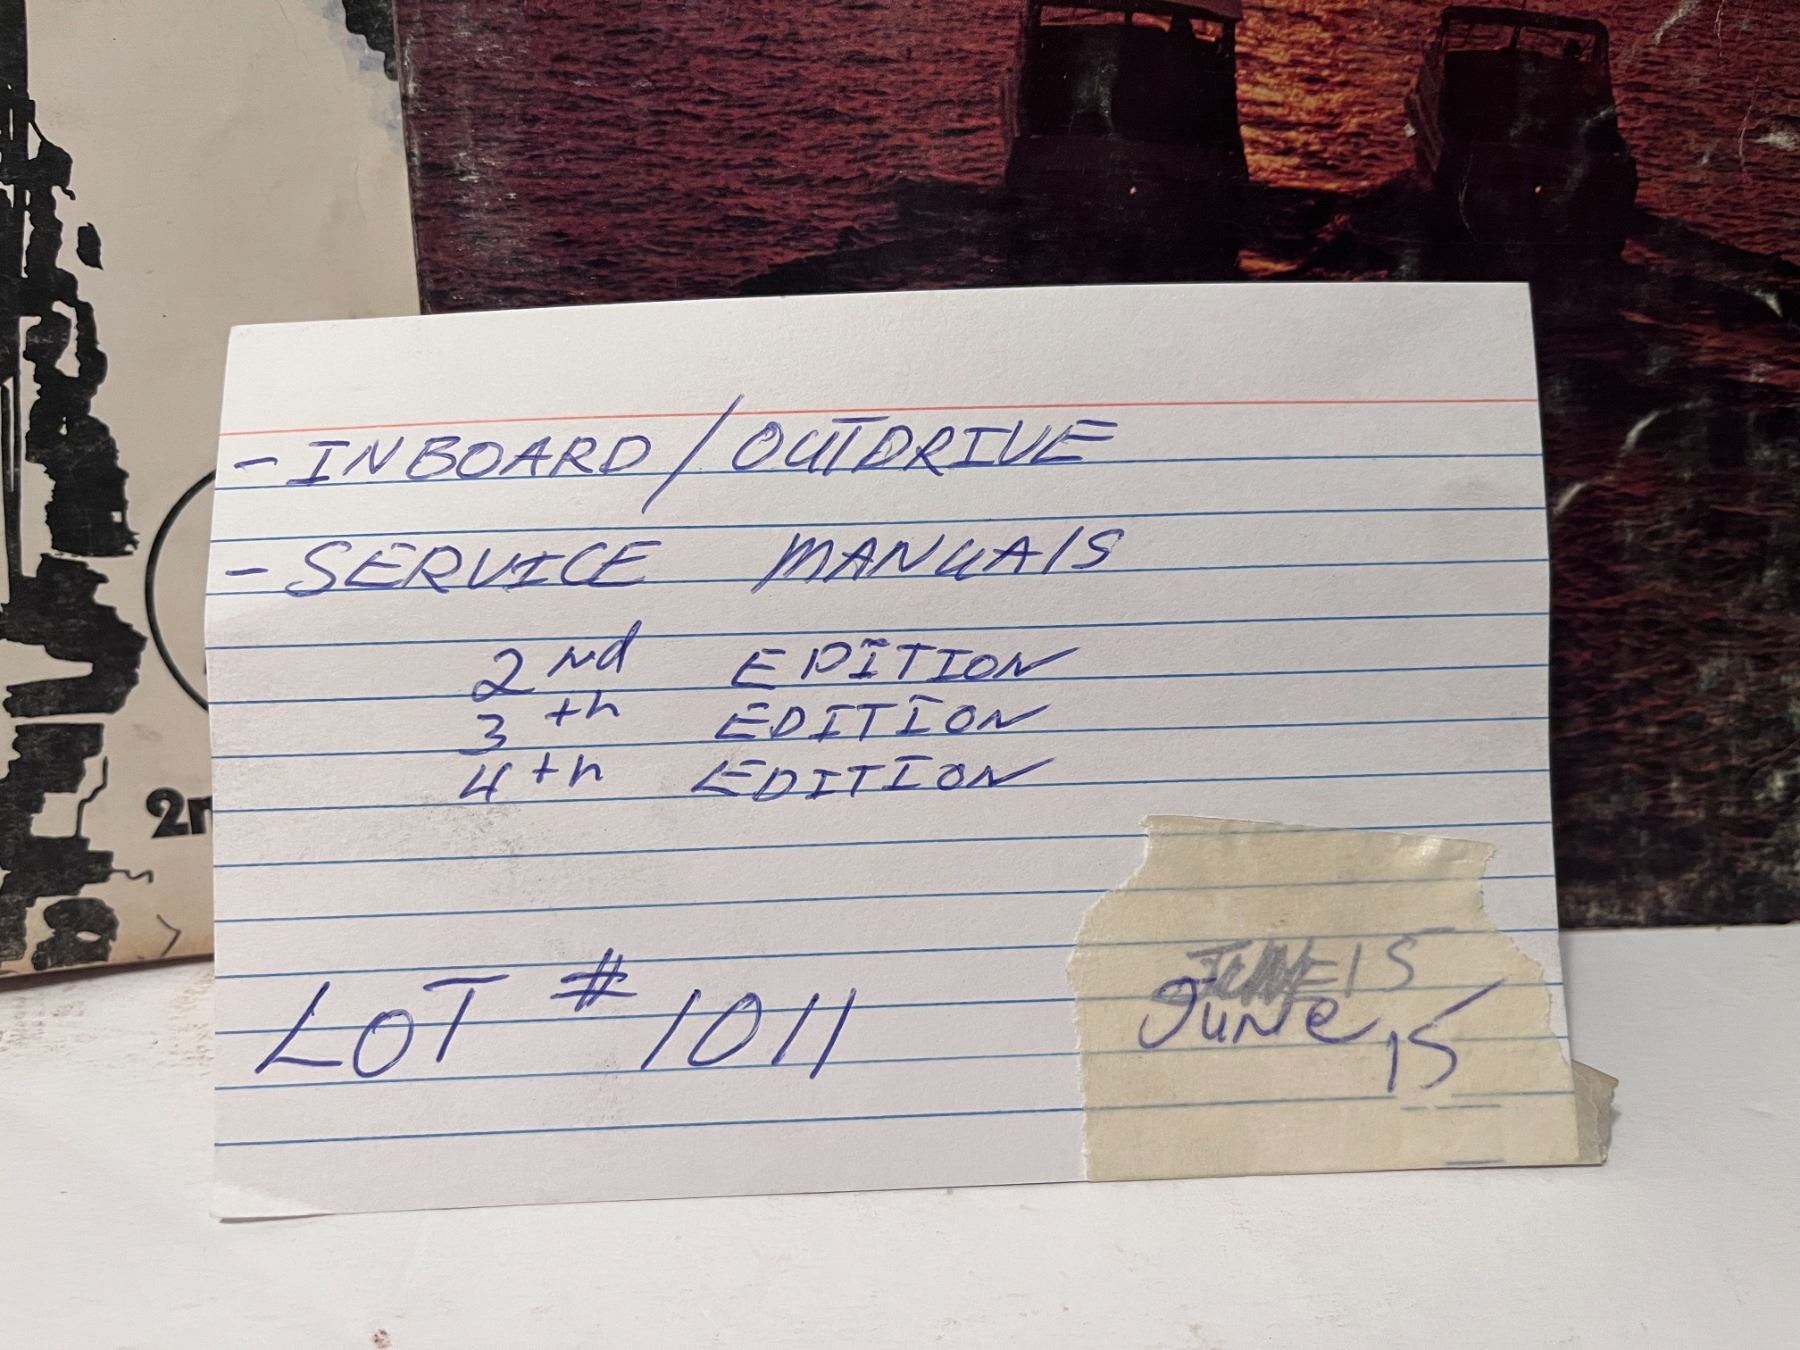 - INBOARD / OUTDRIVE
- SERVICE MANUALS
2nd EDITION
3th EDITION
4th EDITION
LOT # 1011
JUNE 15
June 15
2n